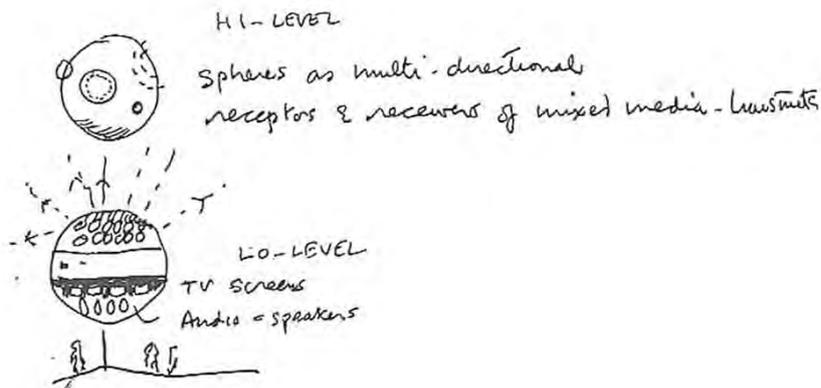 HI-LEVEL
Spheres as multi-directional
receptors & receivers of mixed media-
LO-LEVEL
TV Screens
Audio = speakers